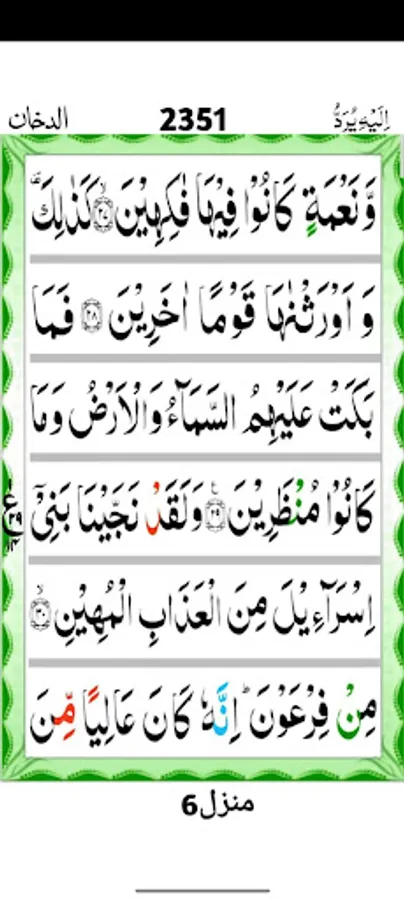 الدخان 2351 اِلَیْهِ یُرَدُّ
وَّ نَعْمَةٍ كَانُوْا فِیْهَا فٰكِهِیْنَ ۙ﴿۲۷﴾ كَذٰلِكَ ۫
وَ اَوْرَثْنٰهَا قَوْمًا اٰخَرِیْنَ ﴿۲۸﴾ فَمَا
بَكَتْ عَلَیْهِمُ السَّمَآءُ وَالْاَرْضُ وَمَا
كَانُوْا مُنْظَرِیْنَ ﴿۲۹﴾ وَلَقَدْ نَجَّیْنَا بَنِیْۤ
اِسْرَآءِیْلَ مِنَ الْعَذَابِ الْمُهِیْنِ ۙ﴿۳۰﴾
مِنْ فِرْعَوْنَ ؕ اِنَّهٗ كَانَ عَالِیًا مِّنَ
منزل6